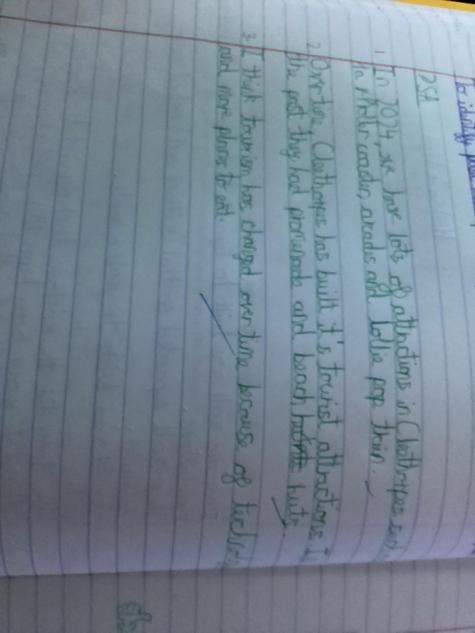 to identify
DSA
1. In 2024, we have lots of attractions in Cleethorpes such
roller coaster, arcades and lollie pop train.
2. Over time, Cleethorpes has built it's tourist attractions. In
the past they had promenade and beach huts.
3. I think tourism has changed over time because of technology
and more places to eat.